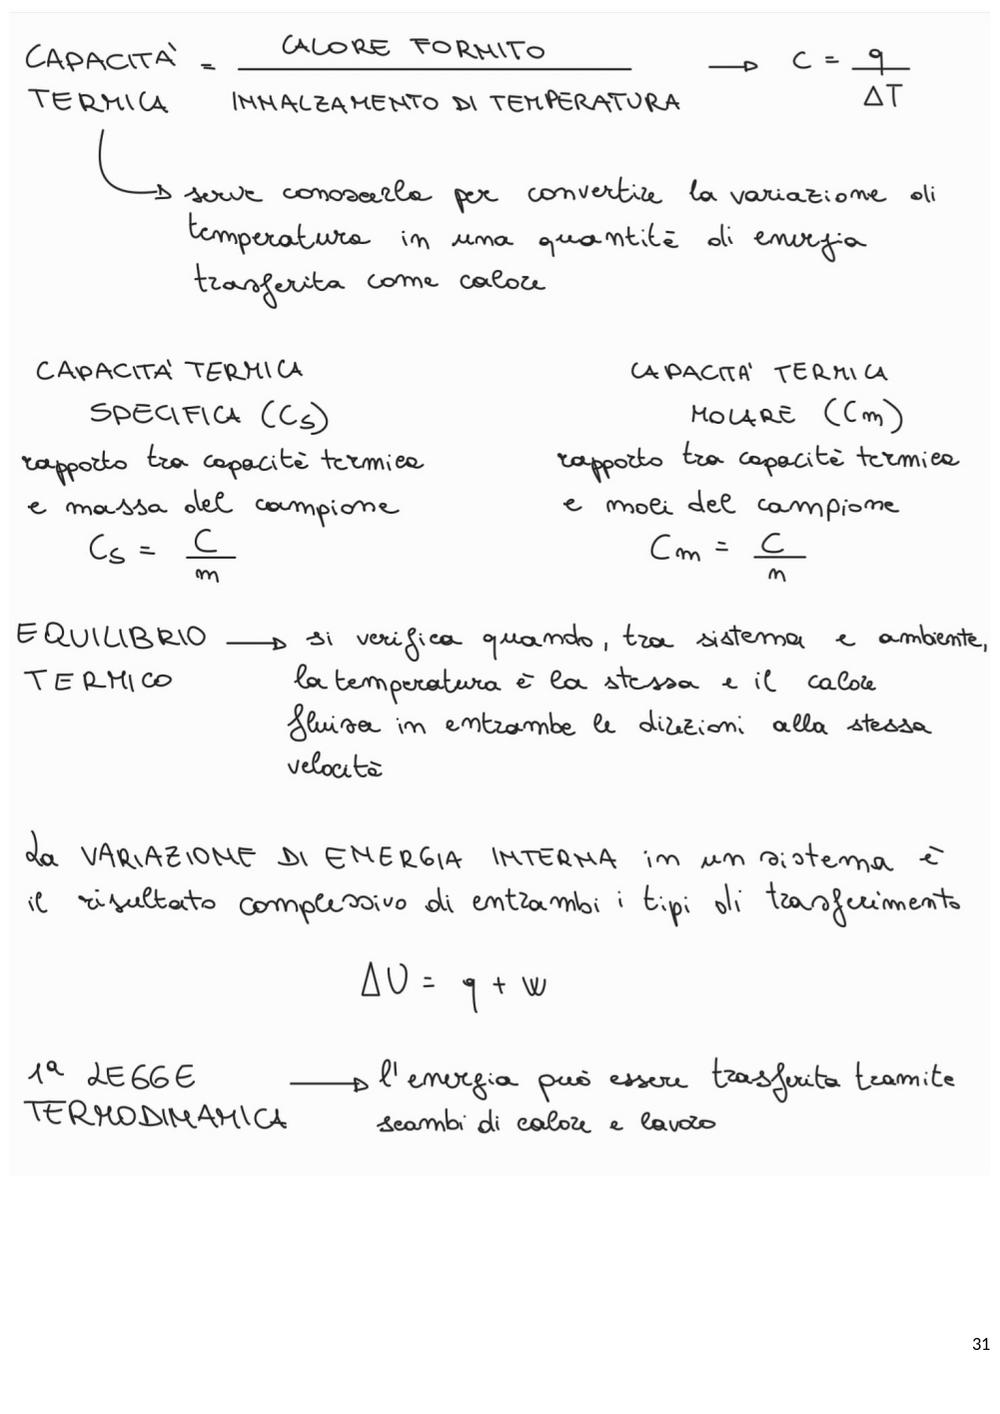 CAPACITÀ = CALORE FORNITO → C = q
TERMICA INNALZAMENTO DI TEMPERATURA ΔT
serve conoscerla per convertire la variazione di
temperatura in una quantità di energia
trasferita come calore
CAPACITÀ TERMICA
SPECIFICA (Cs)
rapporto tra capacità termica
e massa del campione
Cs = C
m
CAPACITA' TERMICA
MOLARE (Cm)
rapporto tra capacità termica
e moli del campione
Cm = C
n
EQUILIBRIO → si verifica quando, tra sistema e ambiente,
TERMICO la temperatura è la stessa e il calore
fluisa in entrambe le direzioni alla stessa
velocità
La VARIAZIONE DI ENERGIA INTERNA in un sistema è
il risultato complessivo di entrambi i tipi di trasferimento
ΔU = q + w
1ª LEGGE → l'energia può essere trasferita tramite
TERMODINAMICA scambi di calore e lavoro
31